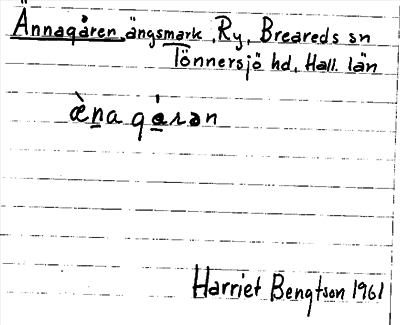 Ännagåren ängsmark, Ry, Breareds sn
Tönnersjö hd, Hall. län
æ̀nagȧrən
Harriet Bengtson 1961